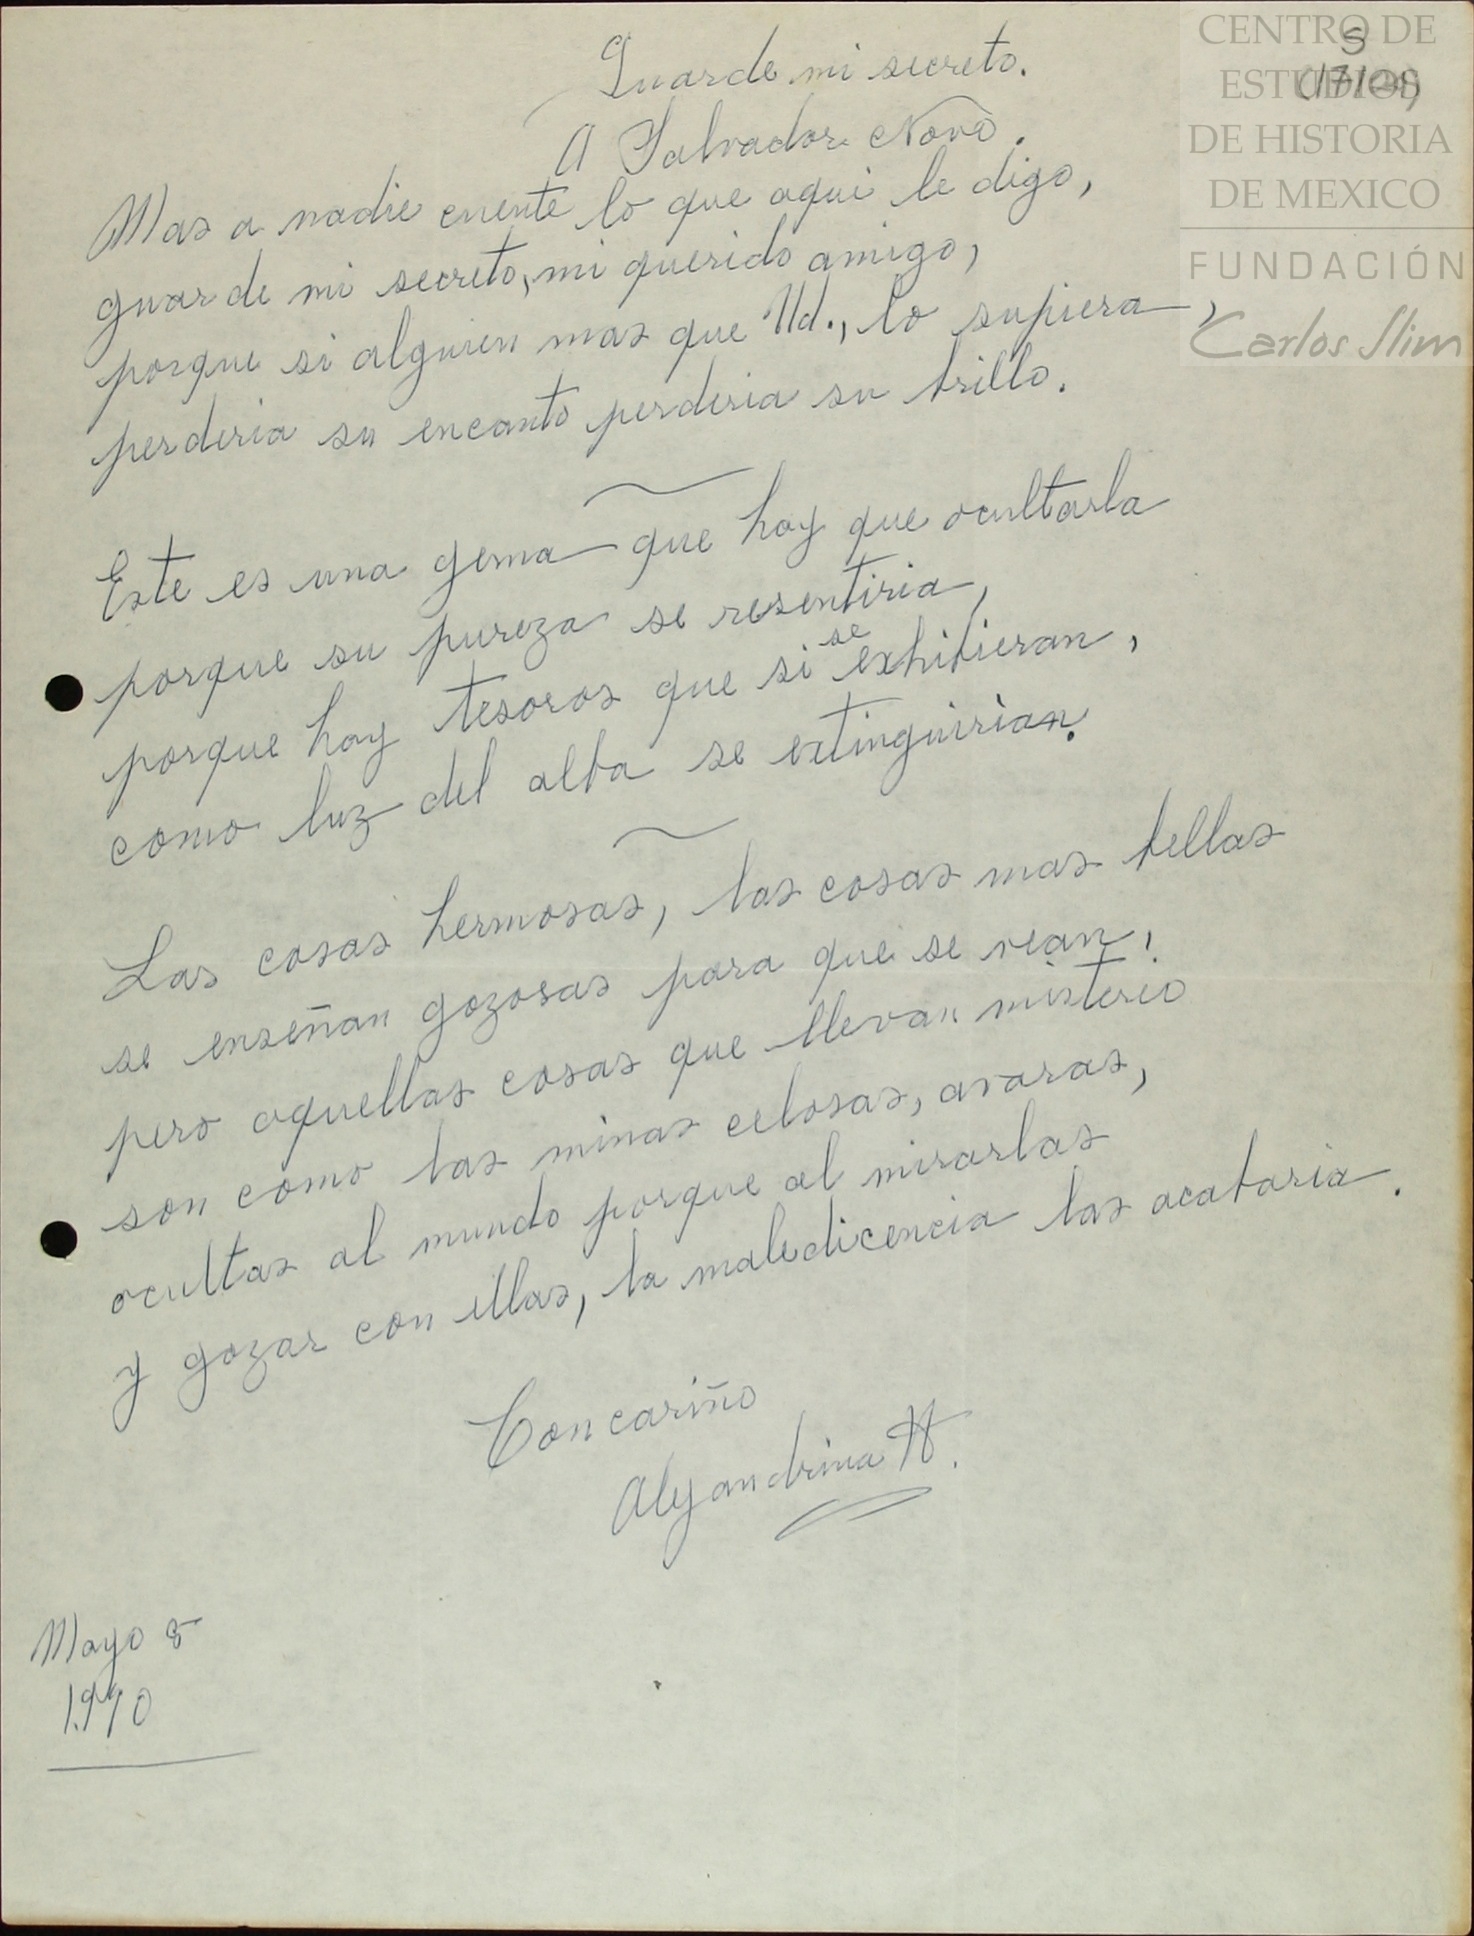 Guarde mi secreto.
A Salvador Novo.
Mas a nadie cuente lo que aqui le digo,
guarde mi secreto, mi querido amigo,
porque si alguien mas que Ud., lo supiera,
perderia su encanto perderia su brillo.
Este es una gema que hay que ocultarla
porque su pureza se resentiria,
porque hay tesoros que si se exhibieran,
como luz del alba se extinguirian.
Las cosas hermosas, las cosas mas bellas
se enseñan gozosas para que se vean,
pero aquellas cosas que llevan misterio
son como las minas celosas, avaras,
ocultas al mundo porque al mirarlas
y gozar con ellas, la maledicencia las acabaria.
Con cariño
Alejandrina H.
Mayo 8
1970
CENTRO DE
ESTUDIOS
DE HISTORIA
DE MEXICO
FUNDACIÓN
Carlos Slim